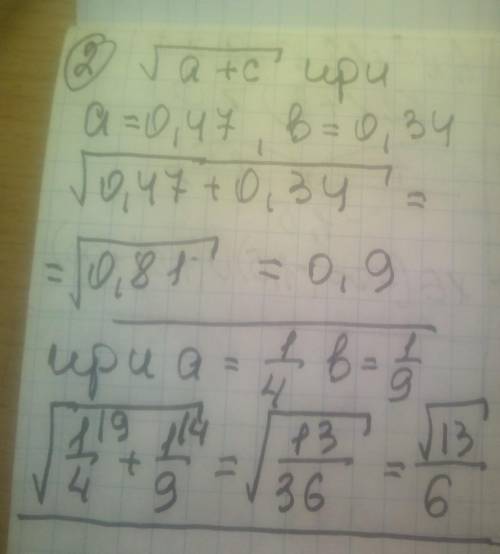 ② √a+c при
a=0,47, в=0,34
√0,47+0,34 =
=√0,81 = 0,9
при a = 1/4 в = 1/9
√1|9/4 + 1|4/9 = √13/36 = √13/6